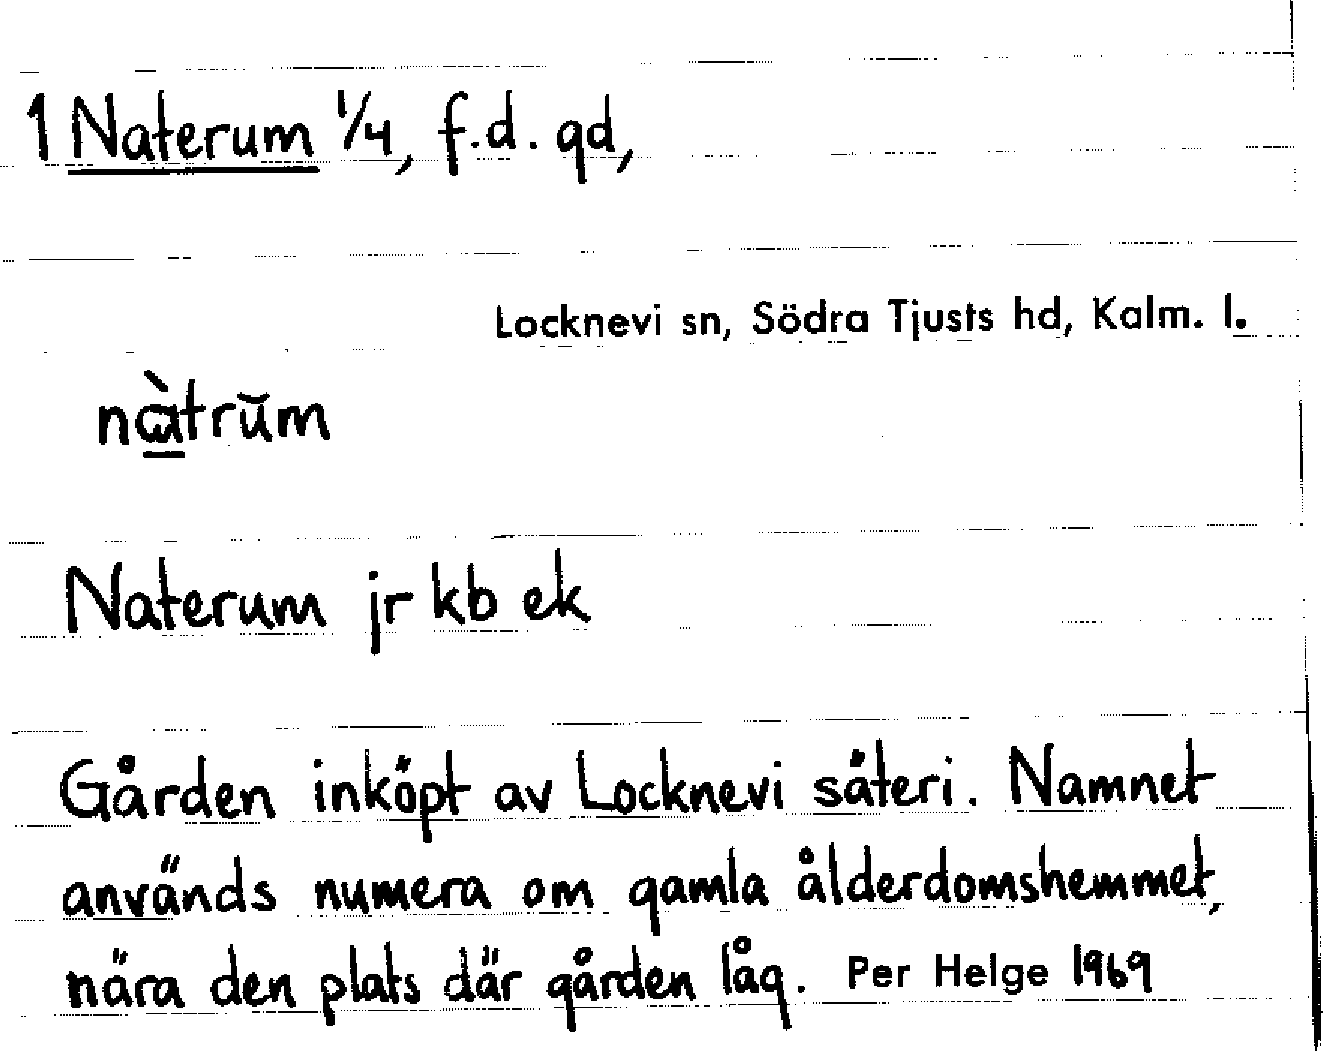 1 Naterum 1/4, f.d. gd,
Locknevi sn, Södra Tjusts hd, Kalm. l.
nàtrŭm
Naterum jr kb ek
Gården inköpt av Locknevi säteri. Namnet
används numera om gamla ålderdomshemmet,
nära den plats där gården låg. Per Helge 1969